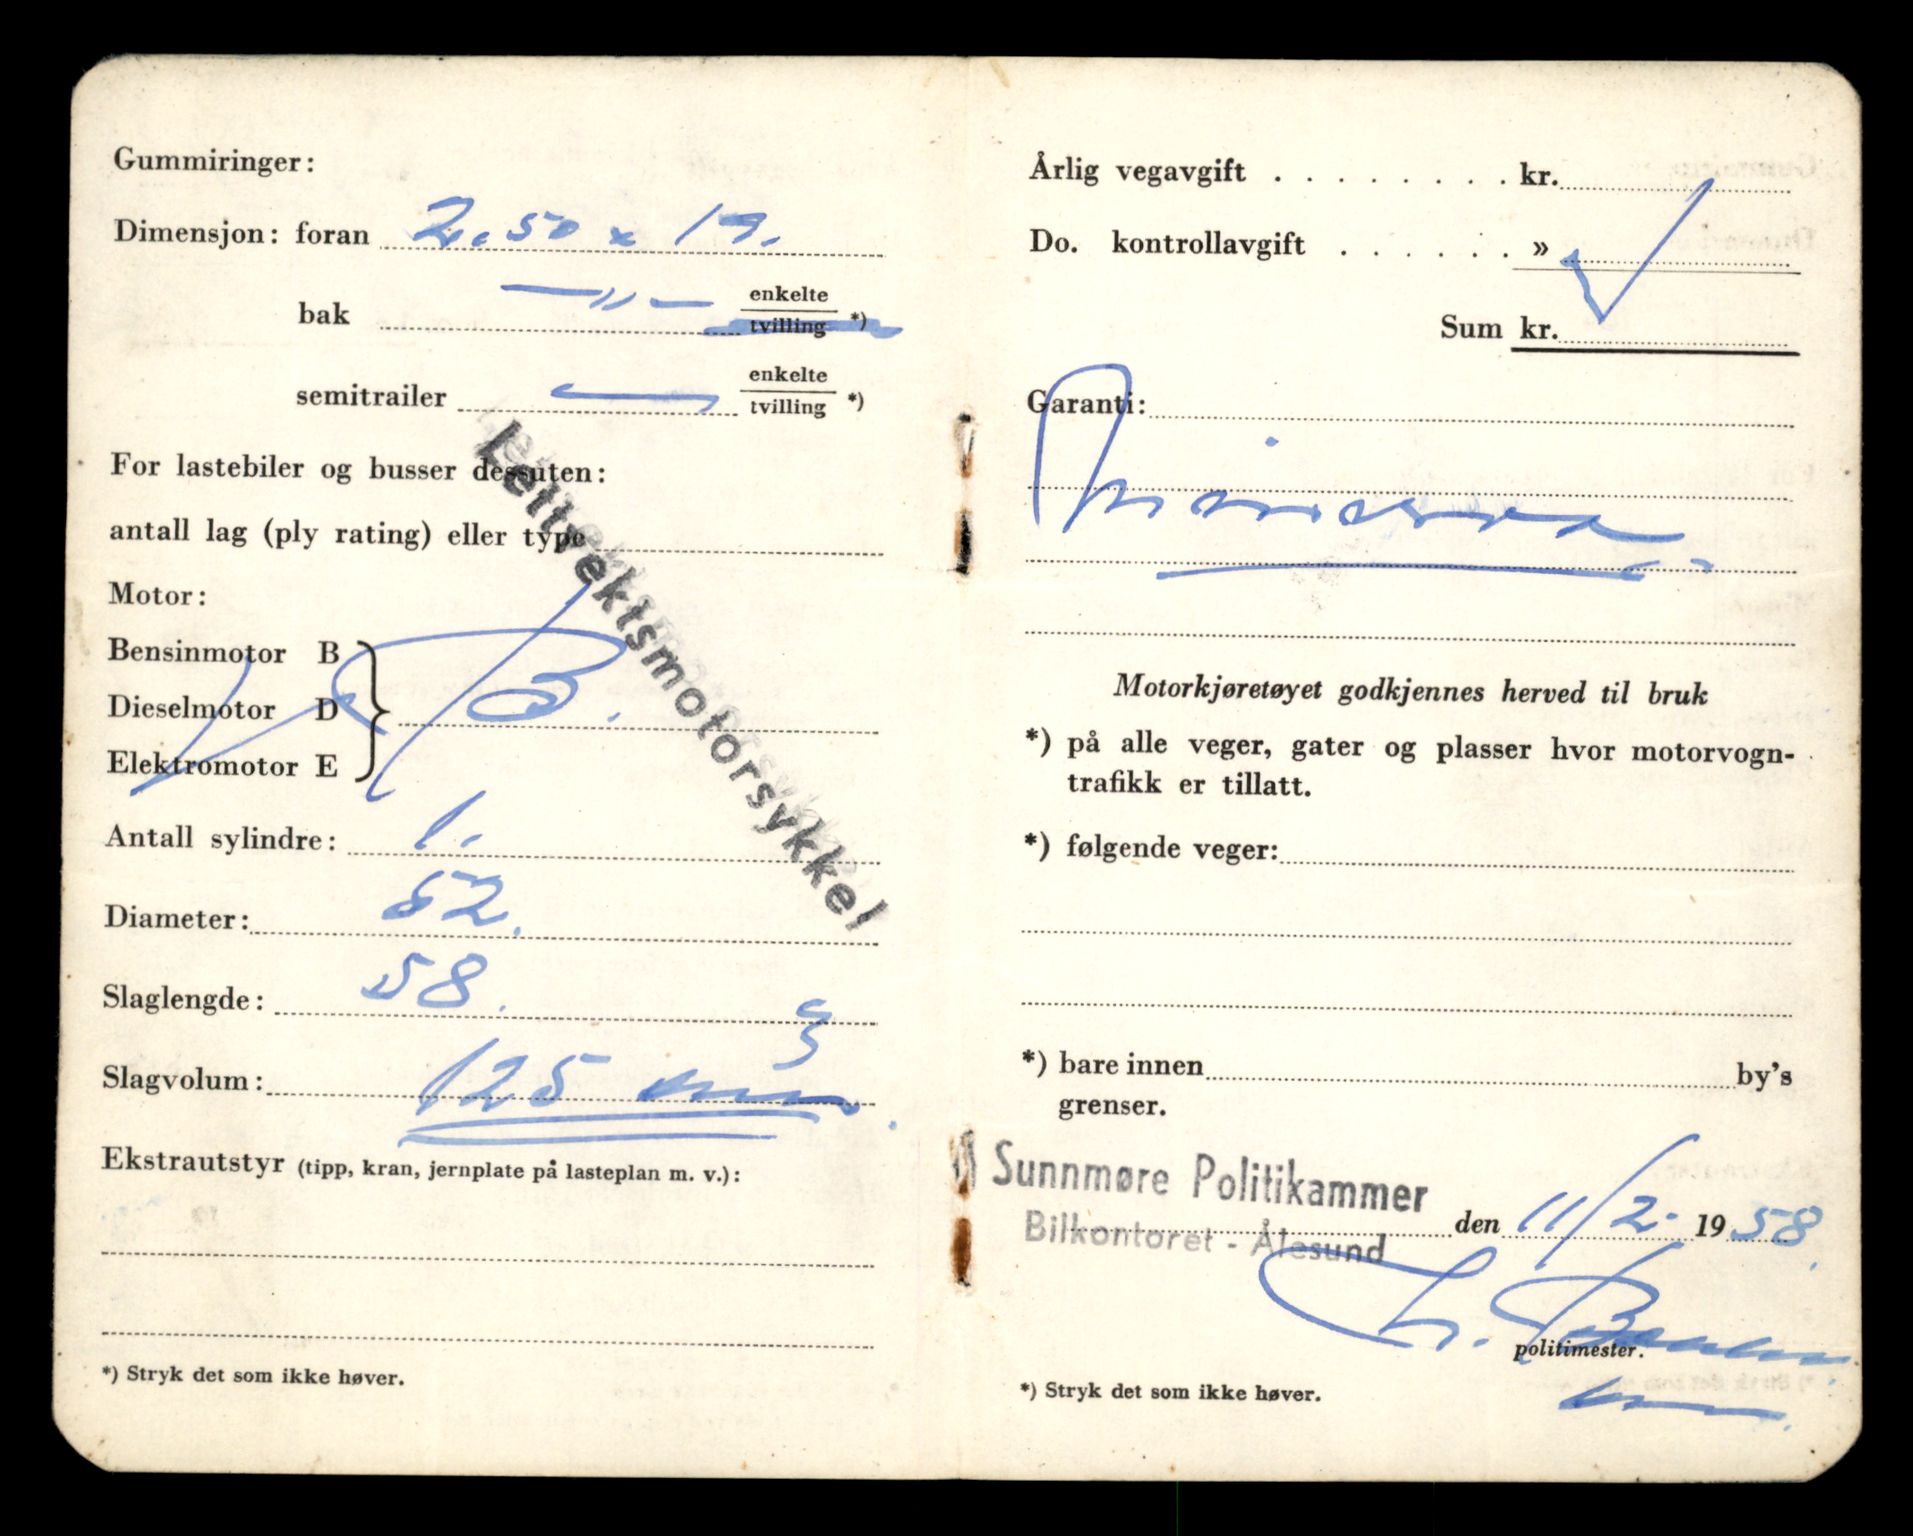 Gummiringer:
Dimensjon: foran 2.50 x 19.
bak —"— enkelte
tvilling *)
semitrailer — enkelte
tvilling *)
For lastebiler og busser dessuten:
antall lag (ply rating) eller type
Lettvektsmotorsykkel
Motor:
Bensinmotor B
Dieselmotor D B.
Elektromotor E
Antall sylindre: 1.
Diameter: 52.
Slaglengde: 58.
Slagvolum: 125
Ekstrautstyr (tipp, kran, jernplate på lasteplan m. v.):
*) Stryk det som ikke høver.
Årlig vegavgift . . . . . . . . kr.
Do. kontrollavgift . . . . . . »
Sum kr.
Garanti:
Motorkjøretøyet godkjennes herved til bruk
*) på alle veger, gater og plasser hvor motorvogn-
trafikk er tillatt.
*) følgende veger:
*) bare innen by's
grenser.
Sunnmøre Politikammer
Bilkontoret - Ålesund den 11/2- 1958.
politimester.
*) Stryk det som ikke høver.